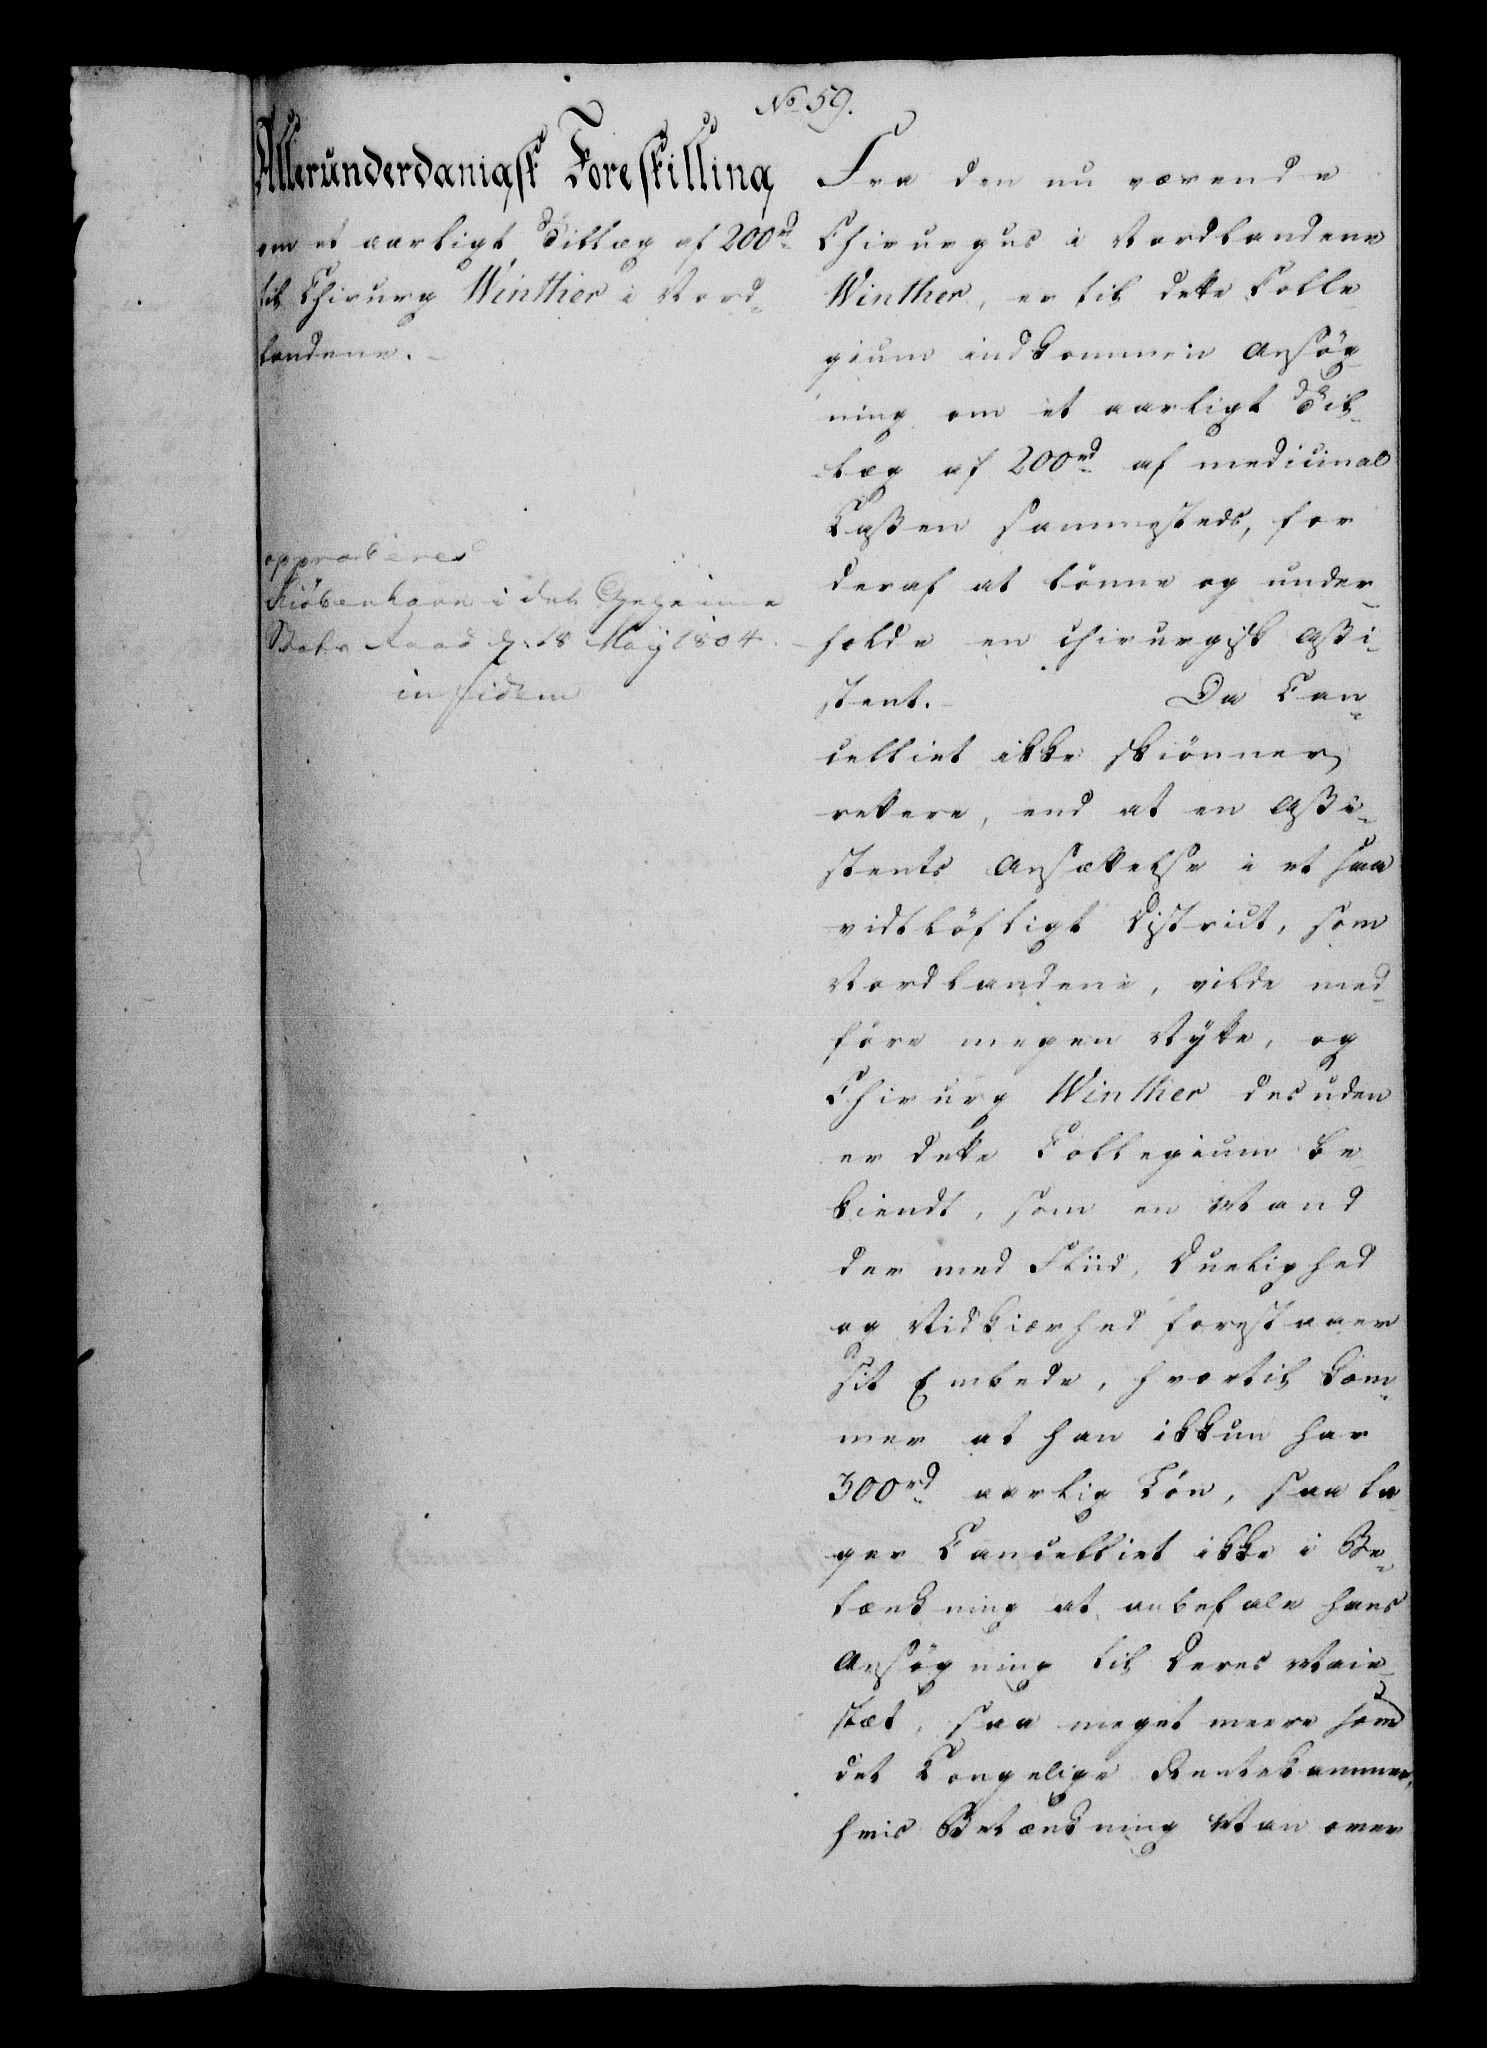 No 59.
Allerunderdanigsk Foreskilling
om et aarligt Tillæg af 200rd
til Chirurg Winther i Nord-
landene.
approberes
Kiöbenhavn i det Geheime
Stats Raad d: 18 Maÿ 1804.
in fidem
Fra den nu værende
Chirurgus i Nordlandene
Winther, er til dette Colle
gium indkommen Ansøg
ning om et aarligt Til-
læg af 200rd af medicinal
Caßen sammesteds, for
deraf at lønne og under-
holde en chirurgisk Aßi-
stent. Da Can-
celliet ikke skiønner
rettere, end at en Aßi-
stents Ansættelse i et saa
vidtløftigt District, som
Nordlandene, vilde med-
føre megen Nÿtte, og
Chirurg Winther desuden
er dette Collegium be
kiendt, som en Mand
der med Fliid, Duelighed
og Nidkiærhed forestaaer
sit Embede, hvortil kom-
mer at han ikkun har
300rd aarlig Løn, saa ta-
ger Cancelliet ikke i Be-
tænkning at anbefale hans
Ansøgning til Deres Maie-
stæt, saa meget meere som
det Kongelige Rentekammer,
hvis Betænkning Man over